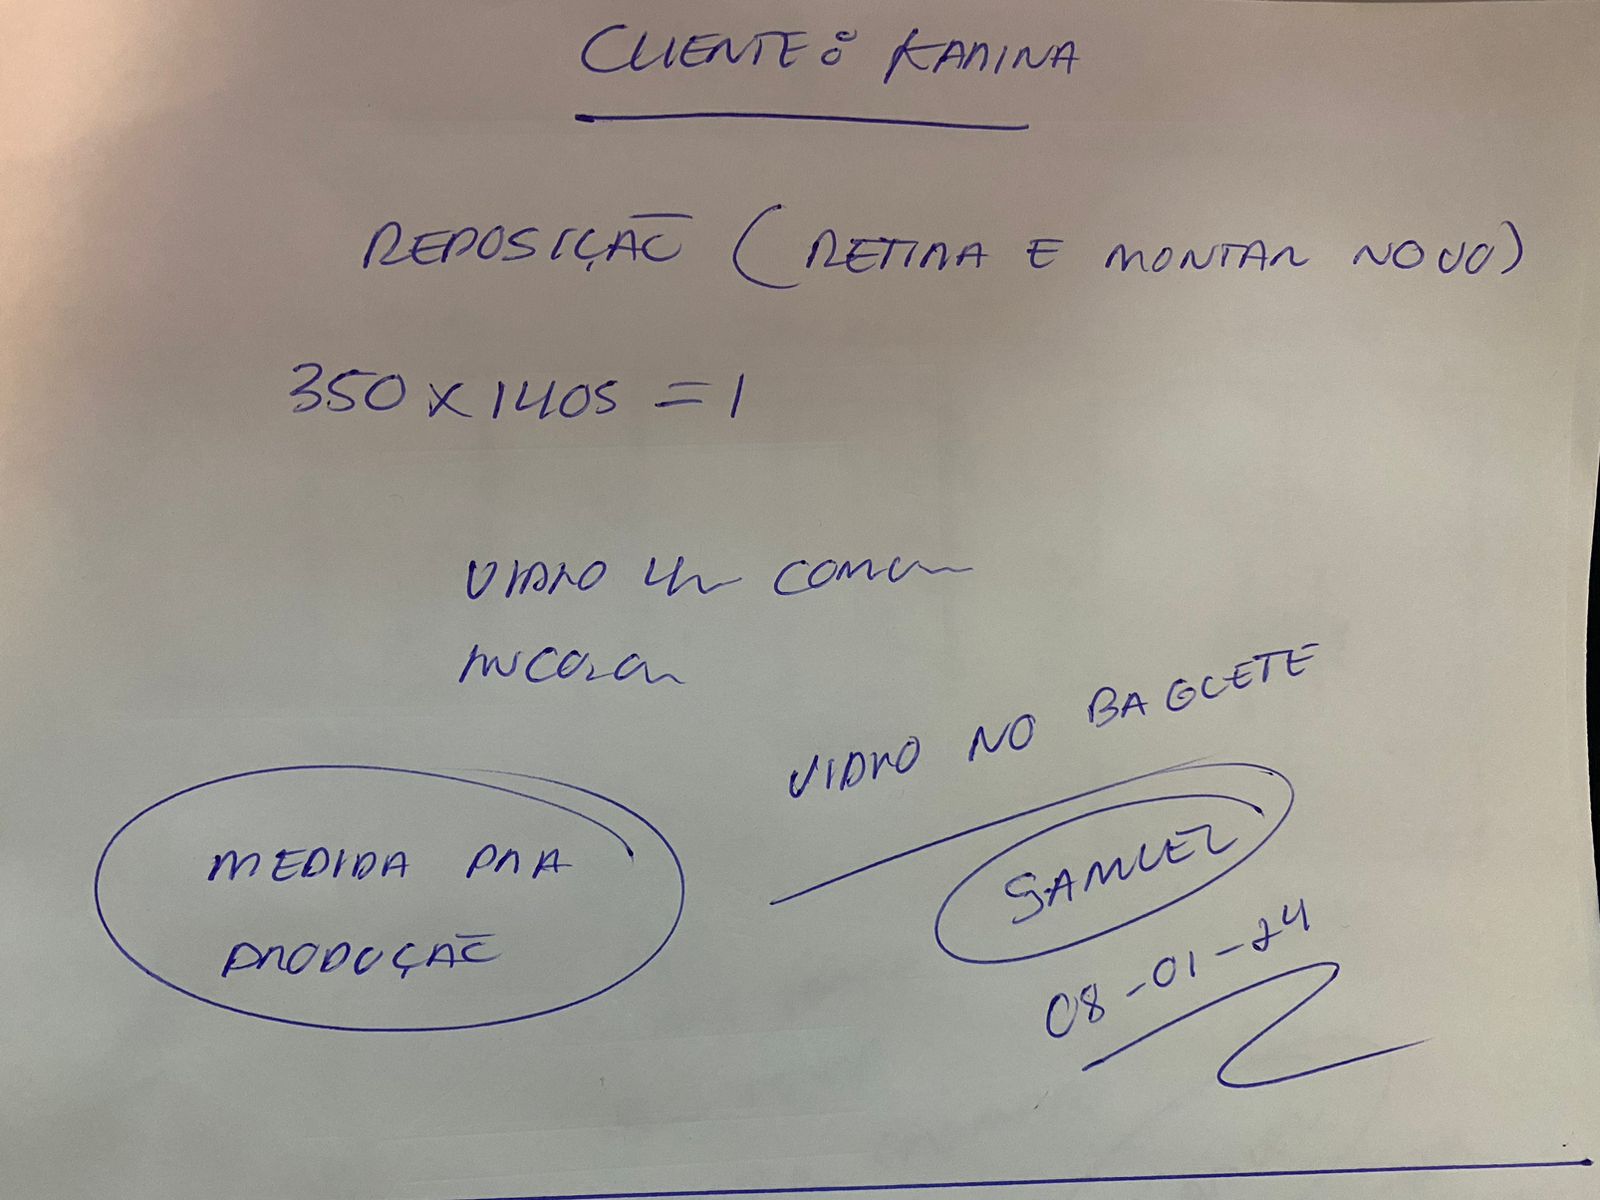 CLIENTE: KARINA
REPOSIÇÃO (RETIRA E MONTAR NOVO)
350 x 1405 = 1
VIDRO 4m COMum
INCOLOR
VIDRO NO BAGUETE
MEDIDA PRA
PRODUÇÃO
SAMUEL
08-01-24